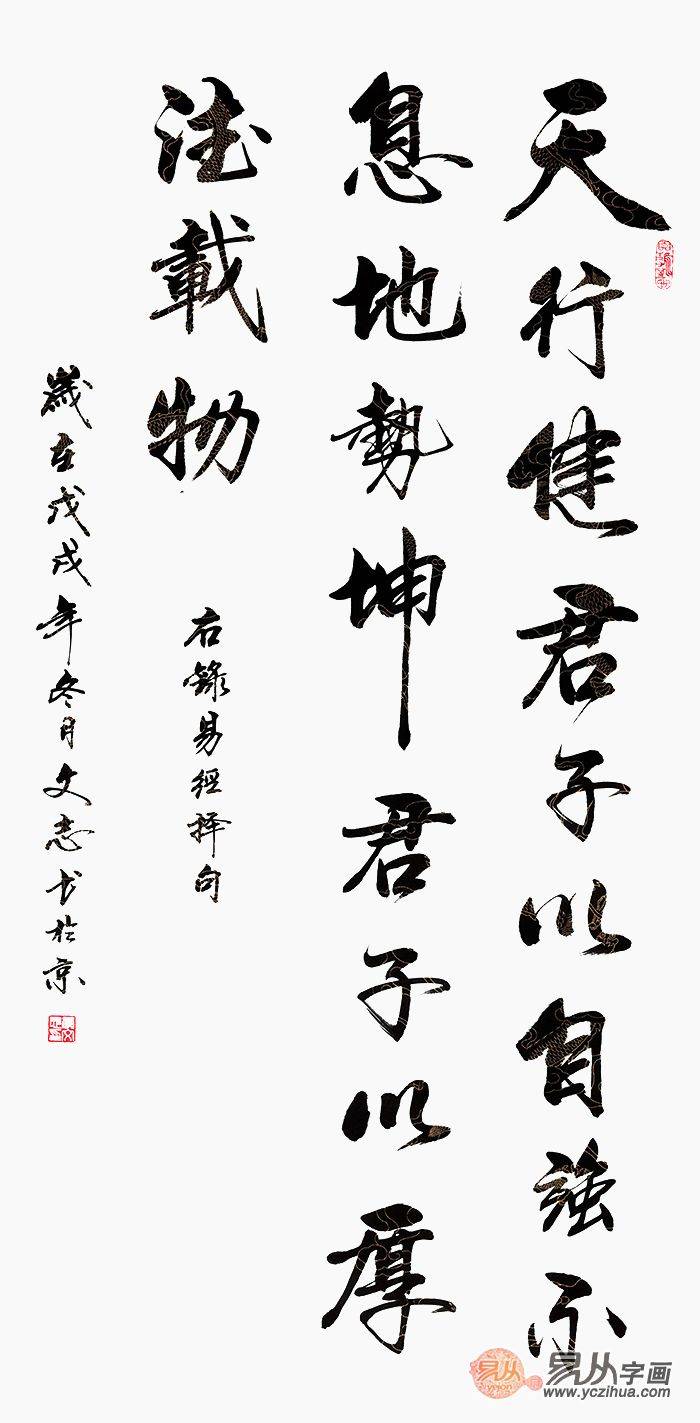 天行健君子以自強不
息地勢坤君子以厚
德載物
右錄易經择句
歲在戊戌年冬月文志书於京
易从
易从字画
www.yczihua.com